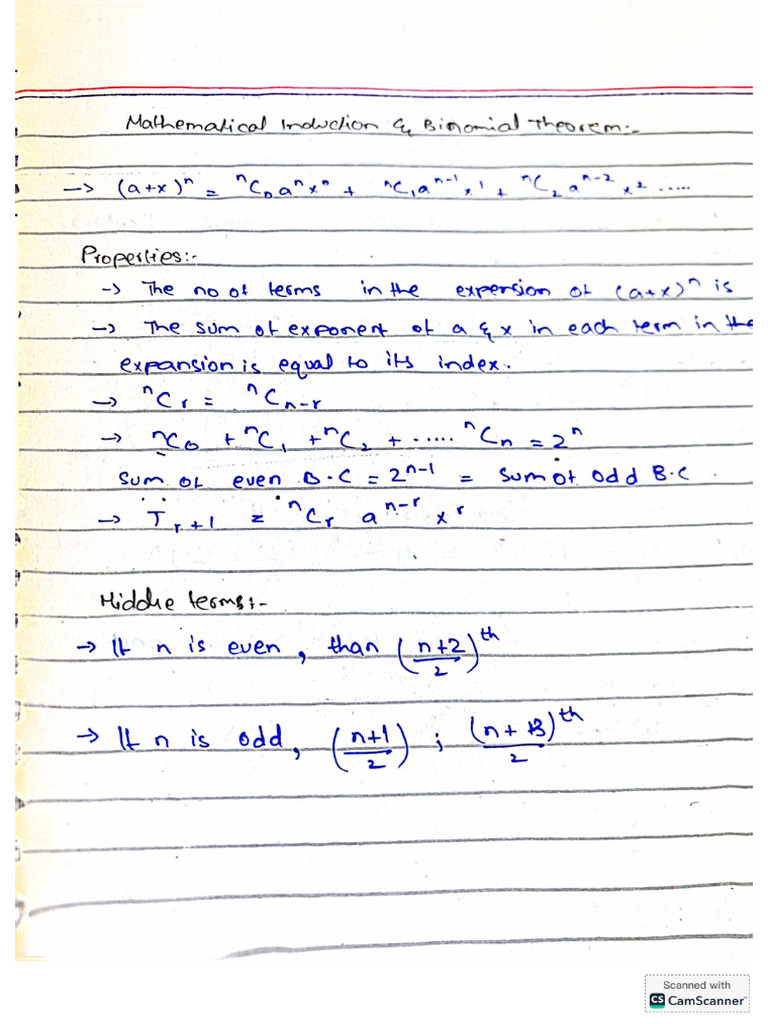 Mathematical Induction & Binomial Theorem:-
→ (a+x)ⁿ = ⁿC₀aⁿx⁰ + ⁿC₁aⁿ⁻¹x¹ + ⁿC₂aⁿ⁻²x² .....
Properties:-
→ The no of terms in the expersion of (a+x)ⁿ is
→ The sum of exponent of a & x in each term in the
expansion is equal to its index.
→ ⁿCᵣ = ⁿCₙ₋ᵣ
→ ⁿC₀ + ⁿC₁ + ⁿC₂ + ..... ⁿCₙ = 2ⁿ
Sum of even B.C = 2ⁿ⁻¹ = Sum of odd B.C.
→ Tᵣ₊₁ = ⁿCᵣ aⁿ⁻ʳ xʳ
Middle terms:-
→ If n is even, than ((n+2)/2)ᵗʰ
→ If n is odd, ((n+1)/2) ; ((n+3)/2)ᵗʰ
Scanned with
CS CamScanner